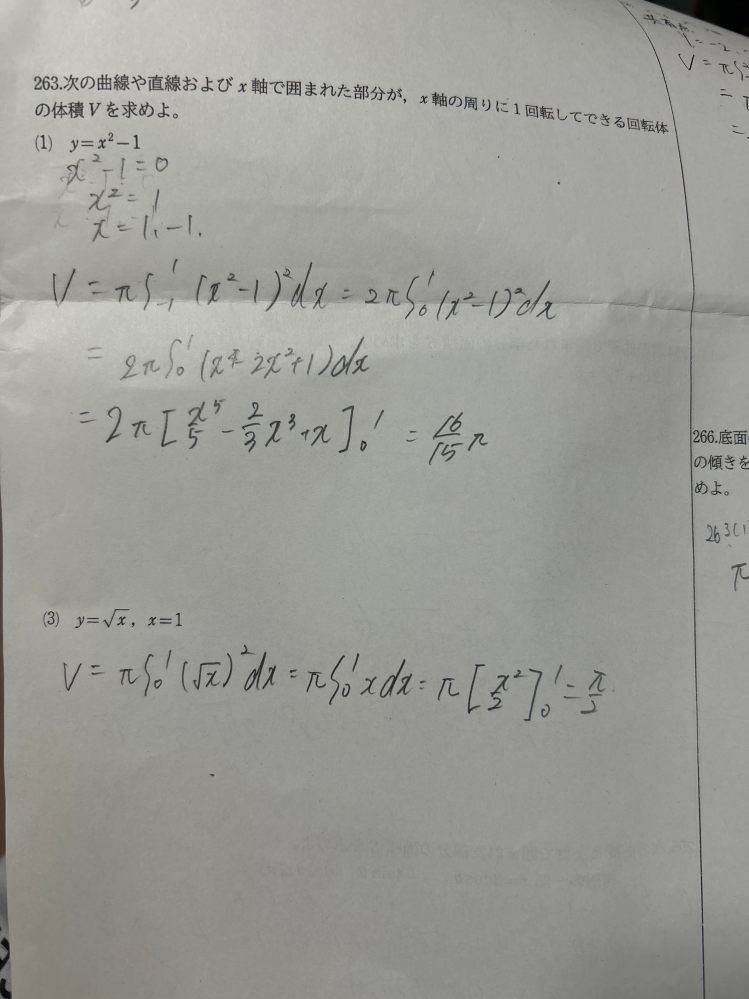 263.次の曲線や直線および x 軸で囲まれた部分が，x 軸の周りに1回転してできる回転体
の体積 V を求めよ。
(1) y=x²−1
x²−1=0
x²=1
x=1, −1.
V = π∫₋₁¹ (x²−1)²dx = 2π∫₀¹ (x²−1)²dx
= 2π∫₀¹ (x⁴−2x²+1)dx
= 2π[x⁵/5 − 2/3 x³+x]₀¹ = 16/15 π
(3) y=√x , x=1
V = π∫₀¹ (√x)²dx = π∫₀¹ x dx = π[x²/2]₀¹ = π/2
= −2
V = π∫
=
=
266.底面
の傾きを
めよ。
263(1
π